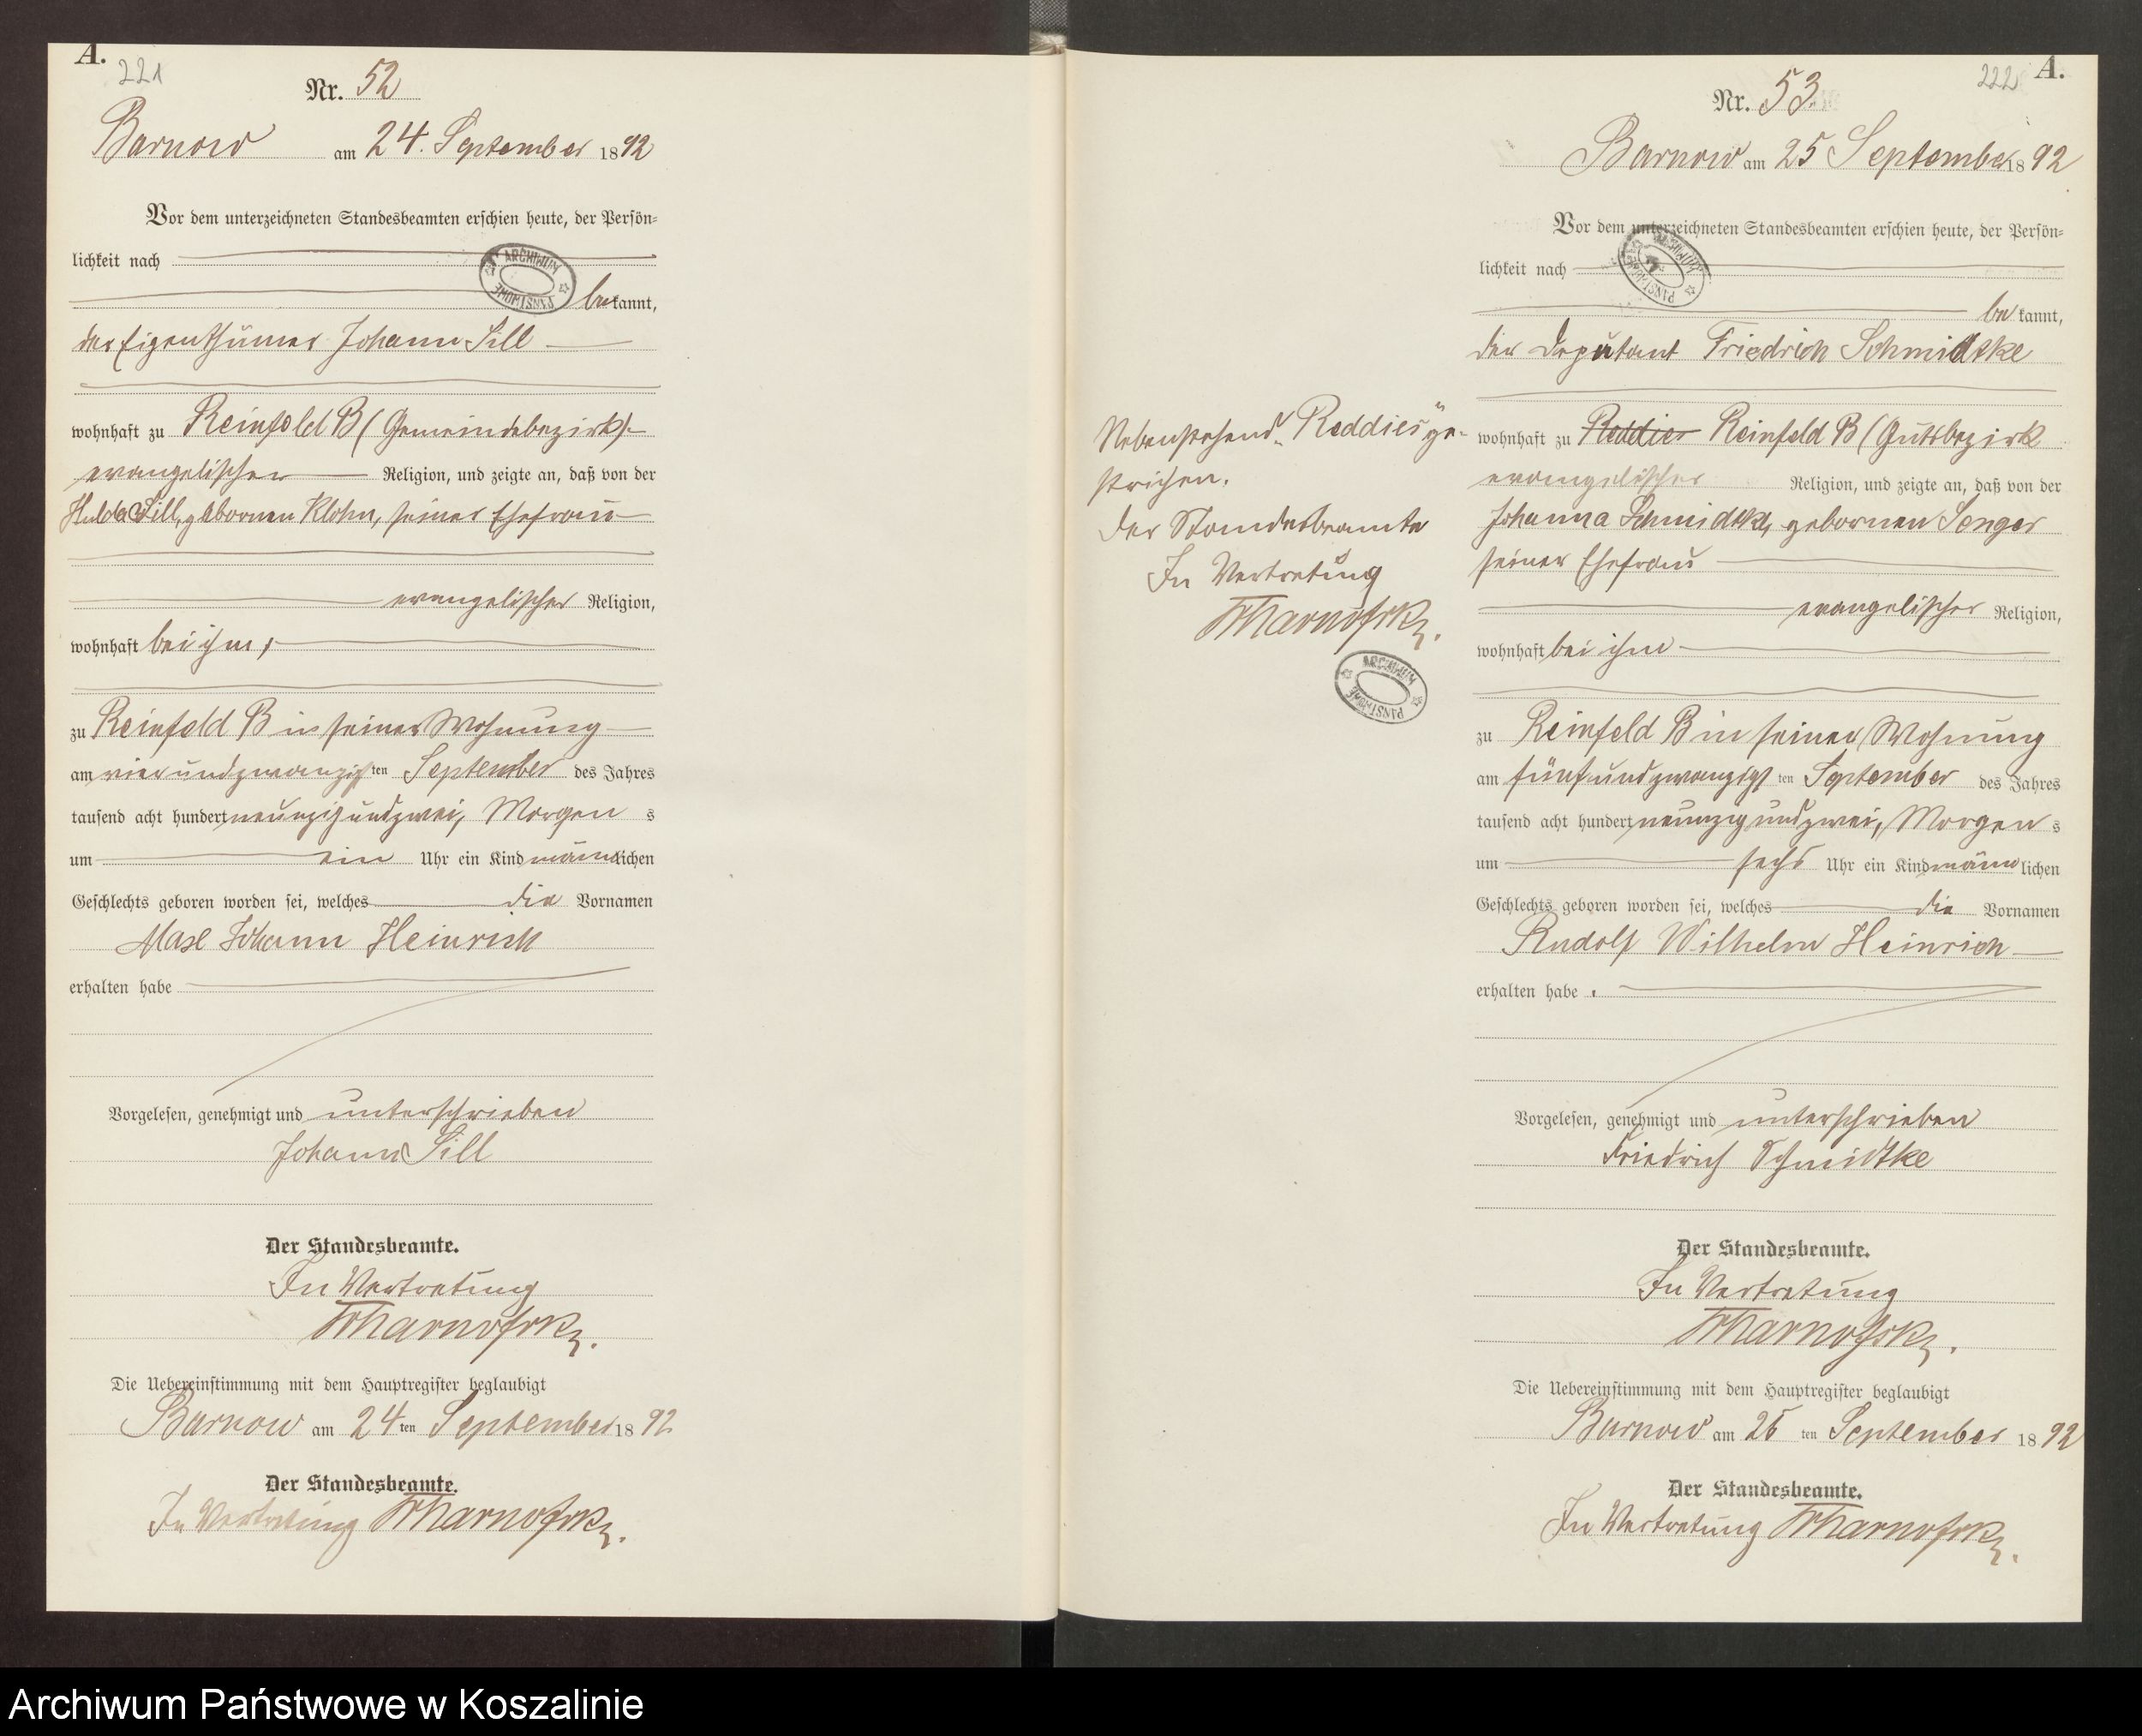 A.
221
Nr. 52
Barnow am 24. September 1892
Vor dem unterzeichneten Standesbeamten erschien heute, der Persön-
lichkeit nach
ARCHIWUM PAŃSTWOWE
bekannt,
der Eigenthümer Johann Sill
wohnhaft zu Reinfeld B (Gemeindebezirk)
evangelischer Religion, und zeigte an, daß von der
Hulda Sill, gebornen Klohn, seiner Ehefrau
evangelischer Religion,
wohnhaft bei ihm,
zu Reinfeld B in seiner Wohnung
am vierundzwanzigsten September des Jahres
tausend acht hundert neunzig und zwei, Morgens
um ein Uhr ein Kind männlichen
Geschlechts geboren worden sei, welches die Vornamen
Max Johann Heinrich
erhalten habe
Vorgelesen, genehmigt und unterschrieben
Johann Sill
Der Standesbeamte.
In Vertretung
Die Uebereinstimmung mit dem Hauptregister beglaubigt
Barnow am 24ten September 1892
Der Standesbeamte.
In Vertretung
222
A.
Nr. 53
Barnow am 25 September 1892
Vor dem unterzeichneten Standesbeamten erschien heute, der Persön-
lichkeit nach
ARCHIWUM PAŃSTWOWE
bekannt,
der Deputant Friedrich Schmidtke
wohnhaft zu Reddies Reinfeld B (Gutsbezirk
evangelischer Religion, und zeigte an, daß von der
Johanna Schmidtke, gebornen Senger
seiner Ehefrau
evangelischer Religion,
wohnhaft bei ihm
zu Reinfeld B in seiner Wohnung
am fünfundzwanzigsten September des Jahres
tausend acht hundert neunzig und zwei, Morgens
um sechs Uhr ein Kind männlichen
Geschlechts geboren worden sei, welches die Vornamen
Rudolf Wilhelm Heinrich
erhalten habe.
Vorgelesen, genehmigt und unterschrieben
Friedrich Schmidtke
Der Standesbeamte.
In Vertretung
Die Uebereinstimmung mit dem Hauptregister beglaubigt
Barnow am 25 ten September 1892
Der Standesbeamte.
In Vertretung
Nebenstehend „Reddies“ ge-
strichen.
Der Standesbeamte
In Vertretung
ARCHIWUM PAŃSTWOWE
Archiwum Państwowe w Koszalinie